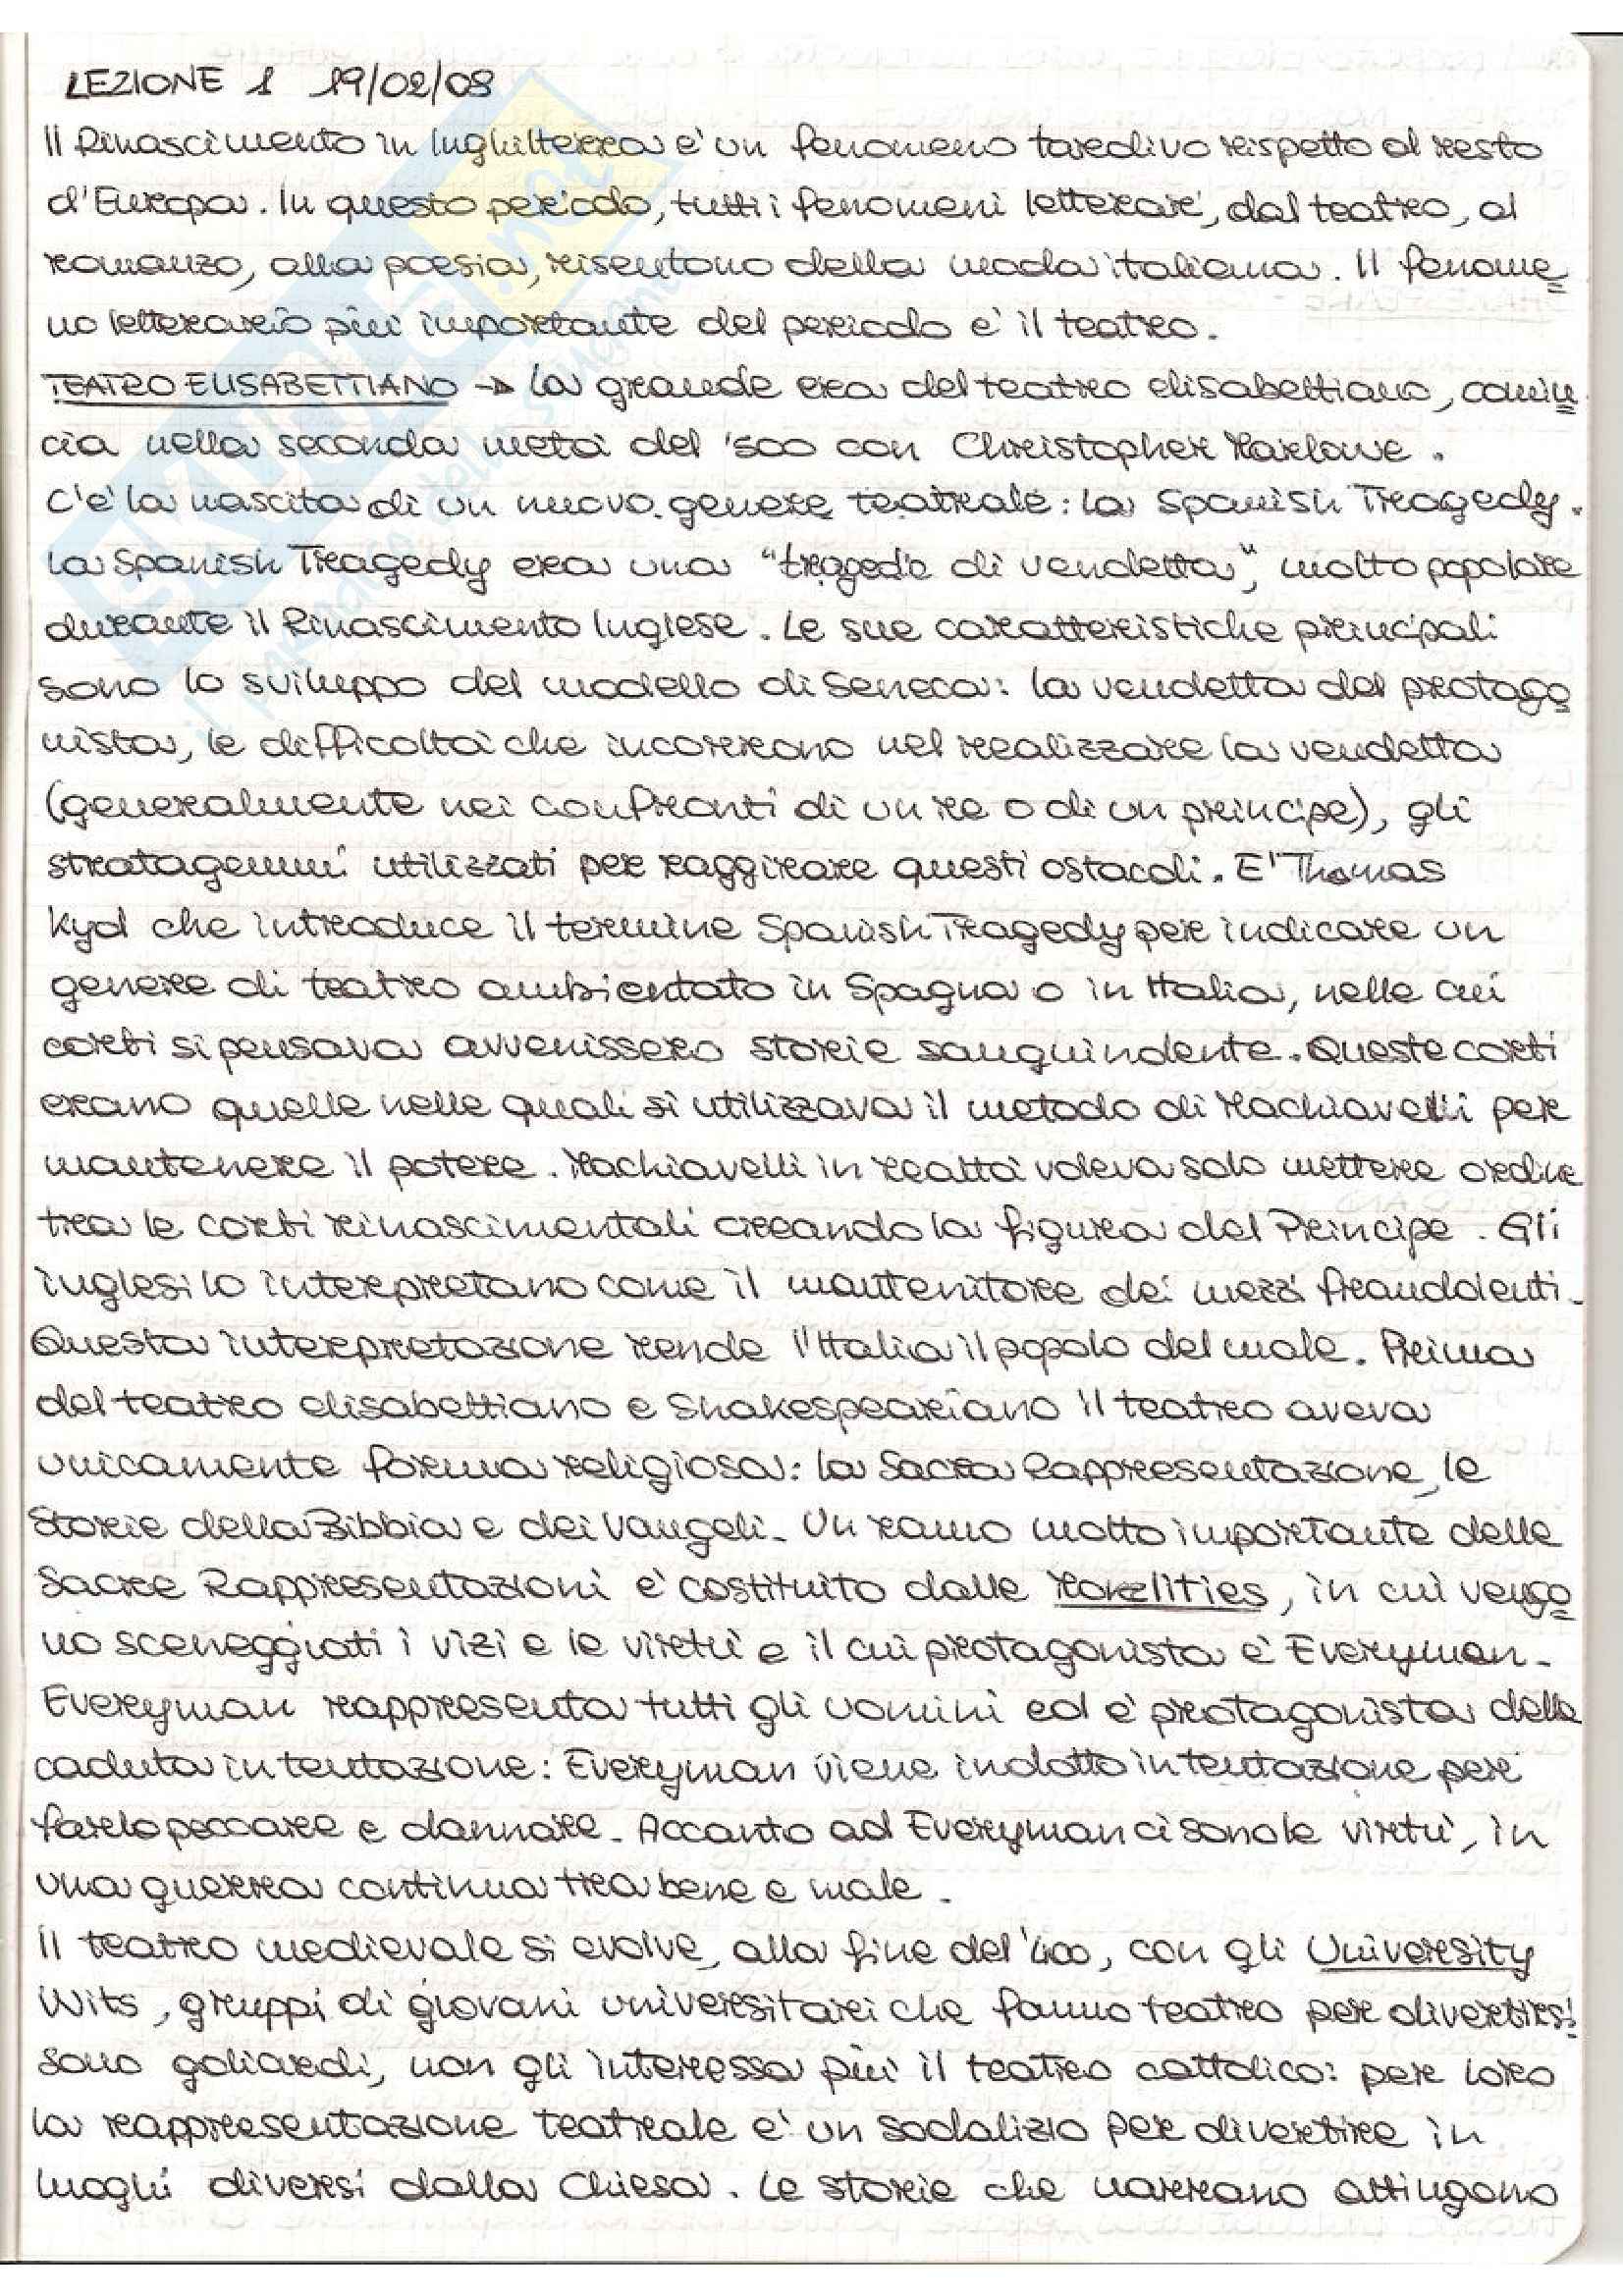 LEZIONE 1 19/02/08
Il Rinascimento in Inghilterra è un fenomeno tardivo rispetto al resto
d'Europa. In questo periodo, tutti i fenomeni letterari, dal teatro, al
romanzo, alla poesia, risentono della moda italiana. Il fenome
no letterario più importante del periodo è il teatro.
TEATRO ELISABETTIANO → La grande era del teatro elisabettiano, comin
cia nella seconda metà del '500 con Christopher Marlowe.
C'è la nascita di un nuovo genere teatrale: la Spanish Tragedy.
La Spanish Tragedy era una "tragedia di vendetta", molto popolare
durante il Rinascimento Inglese. Le sue caratteristiche principali
sono lo sviluppo del modello di Seneca: la vendetta del protago
nista, le difficoltà che incorrono nel realizzare la vendetta
(generalmente nei confronti di un re o di un principe), gli
stratagemmi utilizzati per raggirare questi ostacoli. E' Thomas
Kyd che introduce il termine Spanish Tragedy per indicare un
genere di teatro ambientato in Spagna o in Italia, nelle cui
corti si pensava avvenissero storie sanguindente. Queste corti
erano quelle nelle quali si utilizzava il metodo di Machiavelli per
mantenere il potere. Machiavelli in realtà voleva solo mettere ordine
tra le corti rinascimentali creando la figura del Principe. Gli
inglesi lo interpretano come il mantenitore dei mezzi fraudolenti.
Questa interpretazione rende l'Italia il popolo del male. Prima
del teatro elisabettiano e Shakespeariano il teatro aveva
unicamente forma religiosa: la Sacra Rappresentazione, le
Storie della Bibbia e dei Vangeli. Un ramo molto importante delle
Sacre Rappresentazioni è costituito dalle Moralities, in cui vengo
no sceneggiati i vizi e le virtù e il cui protagonista è Everyman.
Everyman rappresenta tutti gli uomini ed è protagonista della
caduta in tentazione: Everyman viene indotto in tentazione per
farlo peccare e dannare. Accanto ad Everyman ci sono le virtù, in
una guerra continua tra bene e male.
Il teatro medievale si evolve, alla fine del '400, con gli University
Wits, gruppi di giovani universitari che fanno teatro per divertirsi:
sono goliardi, non gli interessa più il teatro cattolico: per loro
la rappresentazione teatrale è un sodalizio per divertire in
luoghi diversi dalla Chiesa. Le storie che narrano attingono